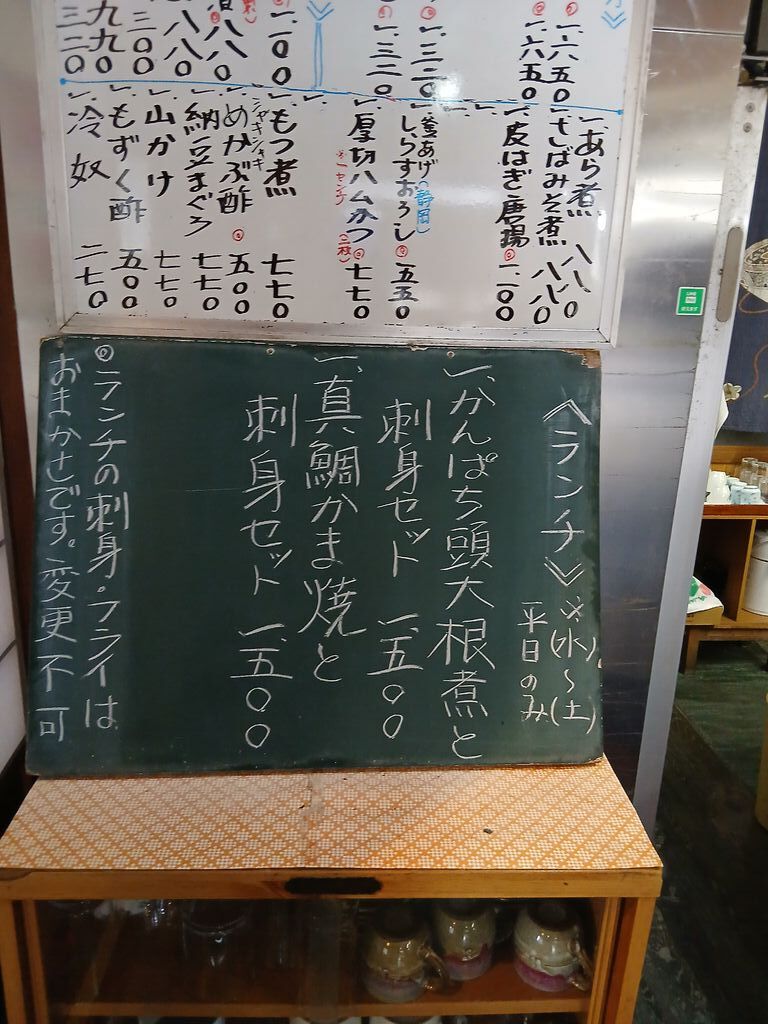 一、六五〇
一、六五〇
一、三二〇
一、三二〇
一、一〇〇
八八〇
八八〇
三〇〇
九九〇
三二〇
一、あら煮 八八〇
一、さばみそ煮 八八〇
一、皮はぎ唐揚 一、一〇〇
一、釜あげ(静岡)
しらすおろし 五五〇
一、厚切ハムかつ(二枚) 七七〇
※一センチ
一、もつ煮 七七〇
シャキシャキ
一、めかぶ酢 五〇〇
一、納豆まぐろ 七七〇
一、山かけ 七七〇
一、もずく酢 五〇〇
一、冷奴 二七〇
≪ランチ≫ ※(水)~(土)
平日のみ
一、かんぱち頭大根煮と
刺身セット 一、五〇〇
一、真鯛かま焼と
刺身セット 一、五〇〇
◎ランチの刺身・フライは
おまかせです。変更不可